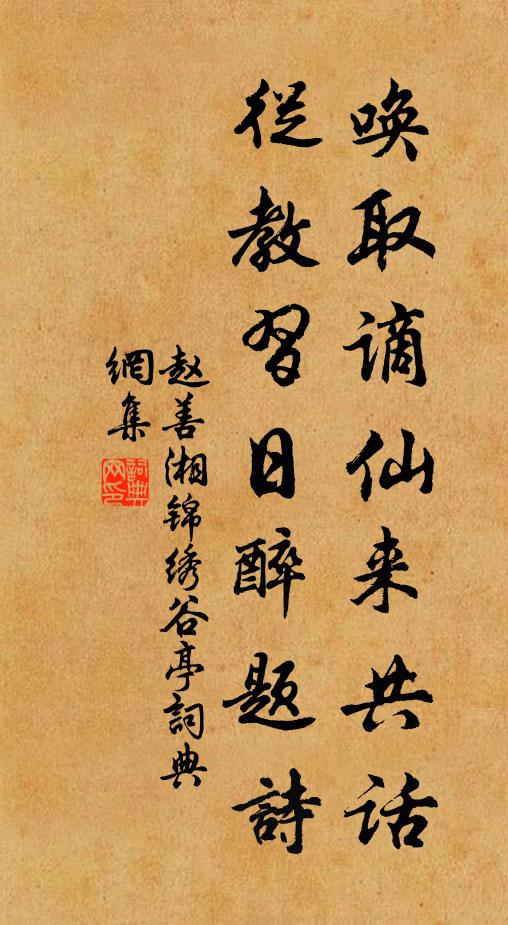 唤取谪仙来共话
從教習日醉题詩
赵善湘锦绣谷亭詞典
網集
詞典
网印